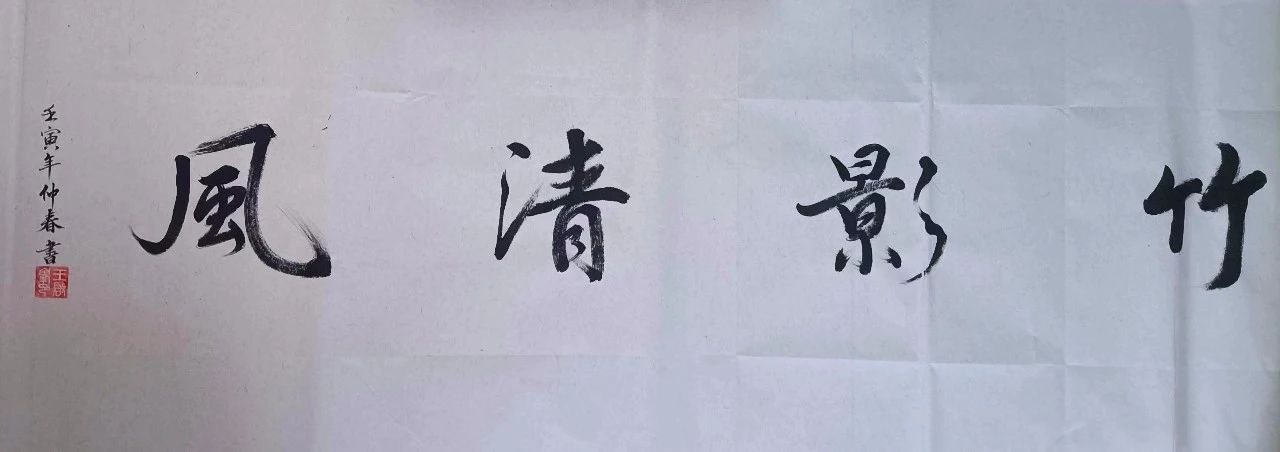 竹影清風
壬寅年仲春書